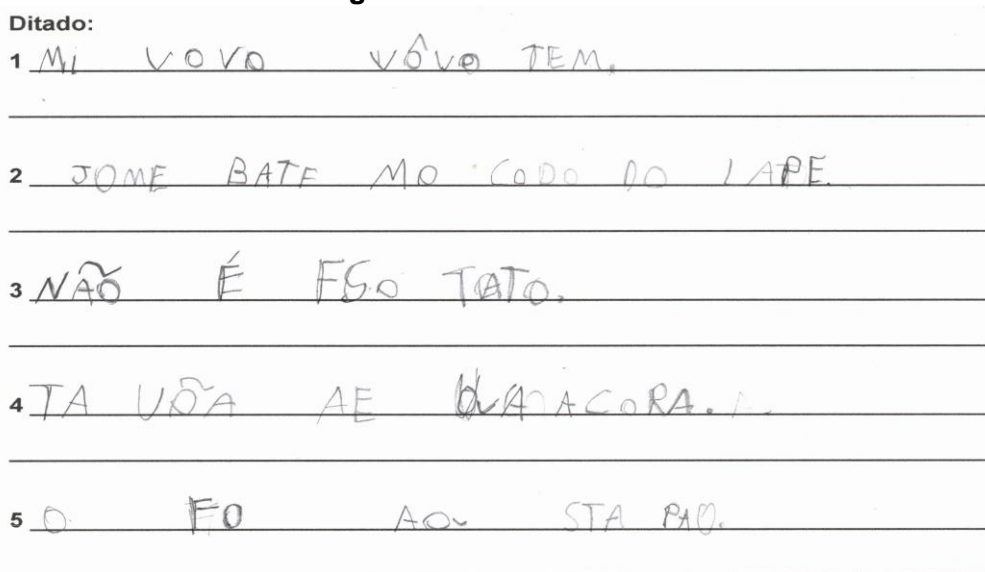 Ditado:
1 MI VOVO VÔVO TEM.
2 JOME BATE MO CODO DO LAPE.
3 NÃO É FSO TATO.
4 TA UÕA AE ACORA.
5 O FO AO STA PAO.